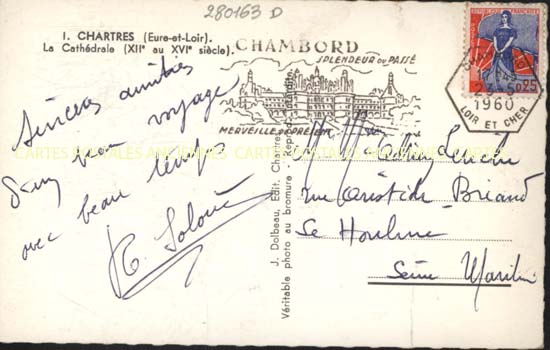 280163 D
I. CHARTRES (Eure-et-Loir).
La Cathédrale (XIIe au XVIe siècle).
CHAMBORD
SPLENDEUR DU PASSÉ
MERVEILLE DU PRÉSENT
1960
LOIR ET CHER
0,25
Sincères amitiés
d'un bon voyage
avec beau temps
J. Dolbeau, Edit. Chartres
Véritable photo au bromure - Reproduction interdite
rue Aristide Briand
Le Houlme
Seine Maritime
CARTES POSTALES ANCIENNES